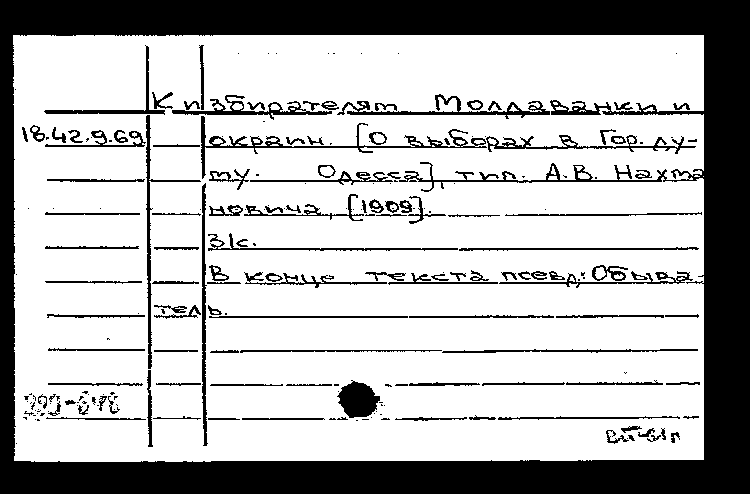 К избирателям Молдаванки и
18.42.9.69 окраин. [О выборах в Гор. ду-
му. Одесса], тип. А.В. Нахма
новича, [1909].
3/с.
В конце текста псевд.: Обыва-
тель.
390-648